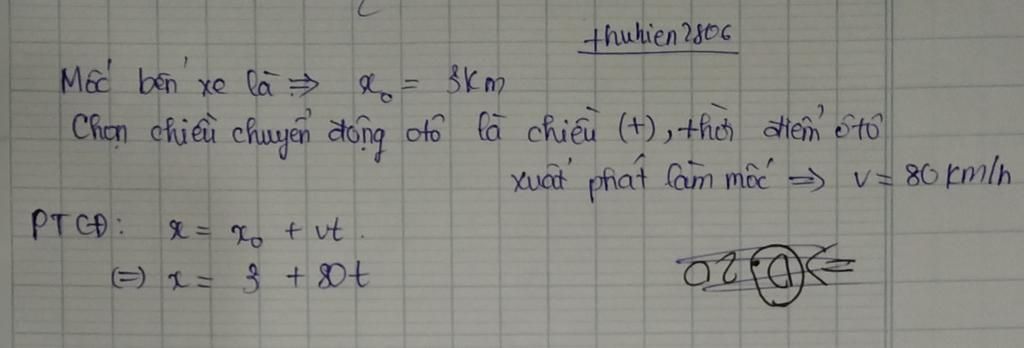 thuhien2806
Mốc bến xe là => x₀ = 3km
Chọn chiều chuyển động ôtô là chiều (+), thời điểm ôtô
xuất phát làm mốc => v = 80 km/h
PTCĐ: x = x₀ + vt.
(=) x = 3 + 80t